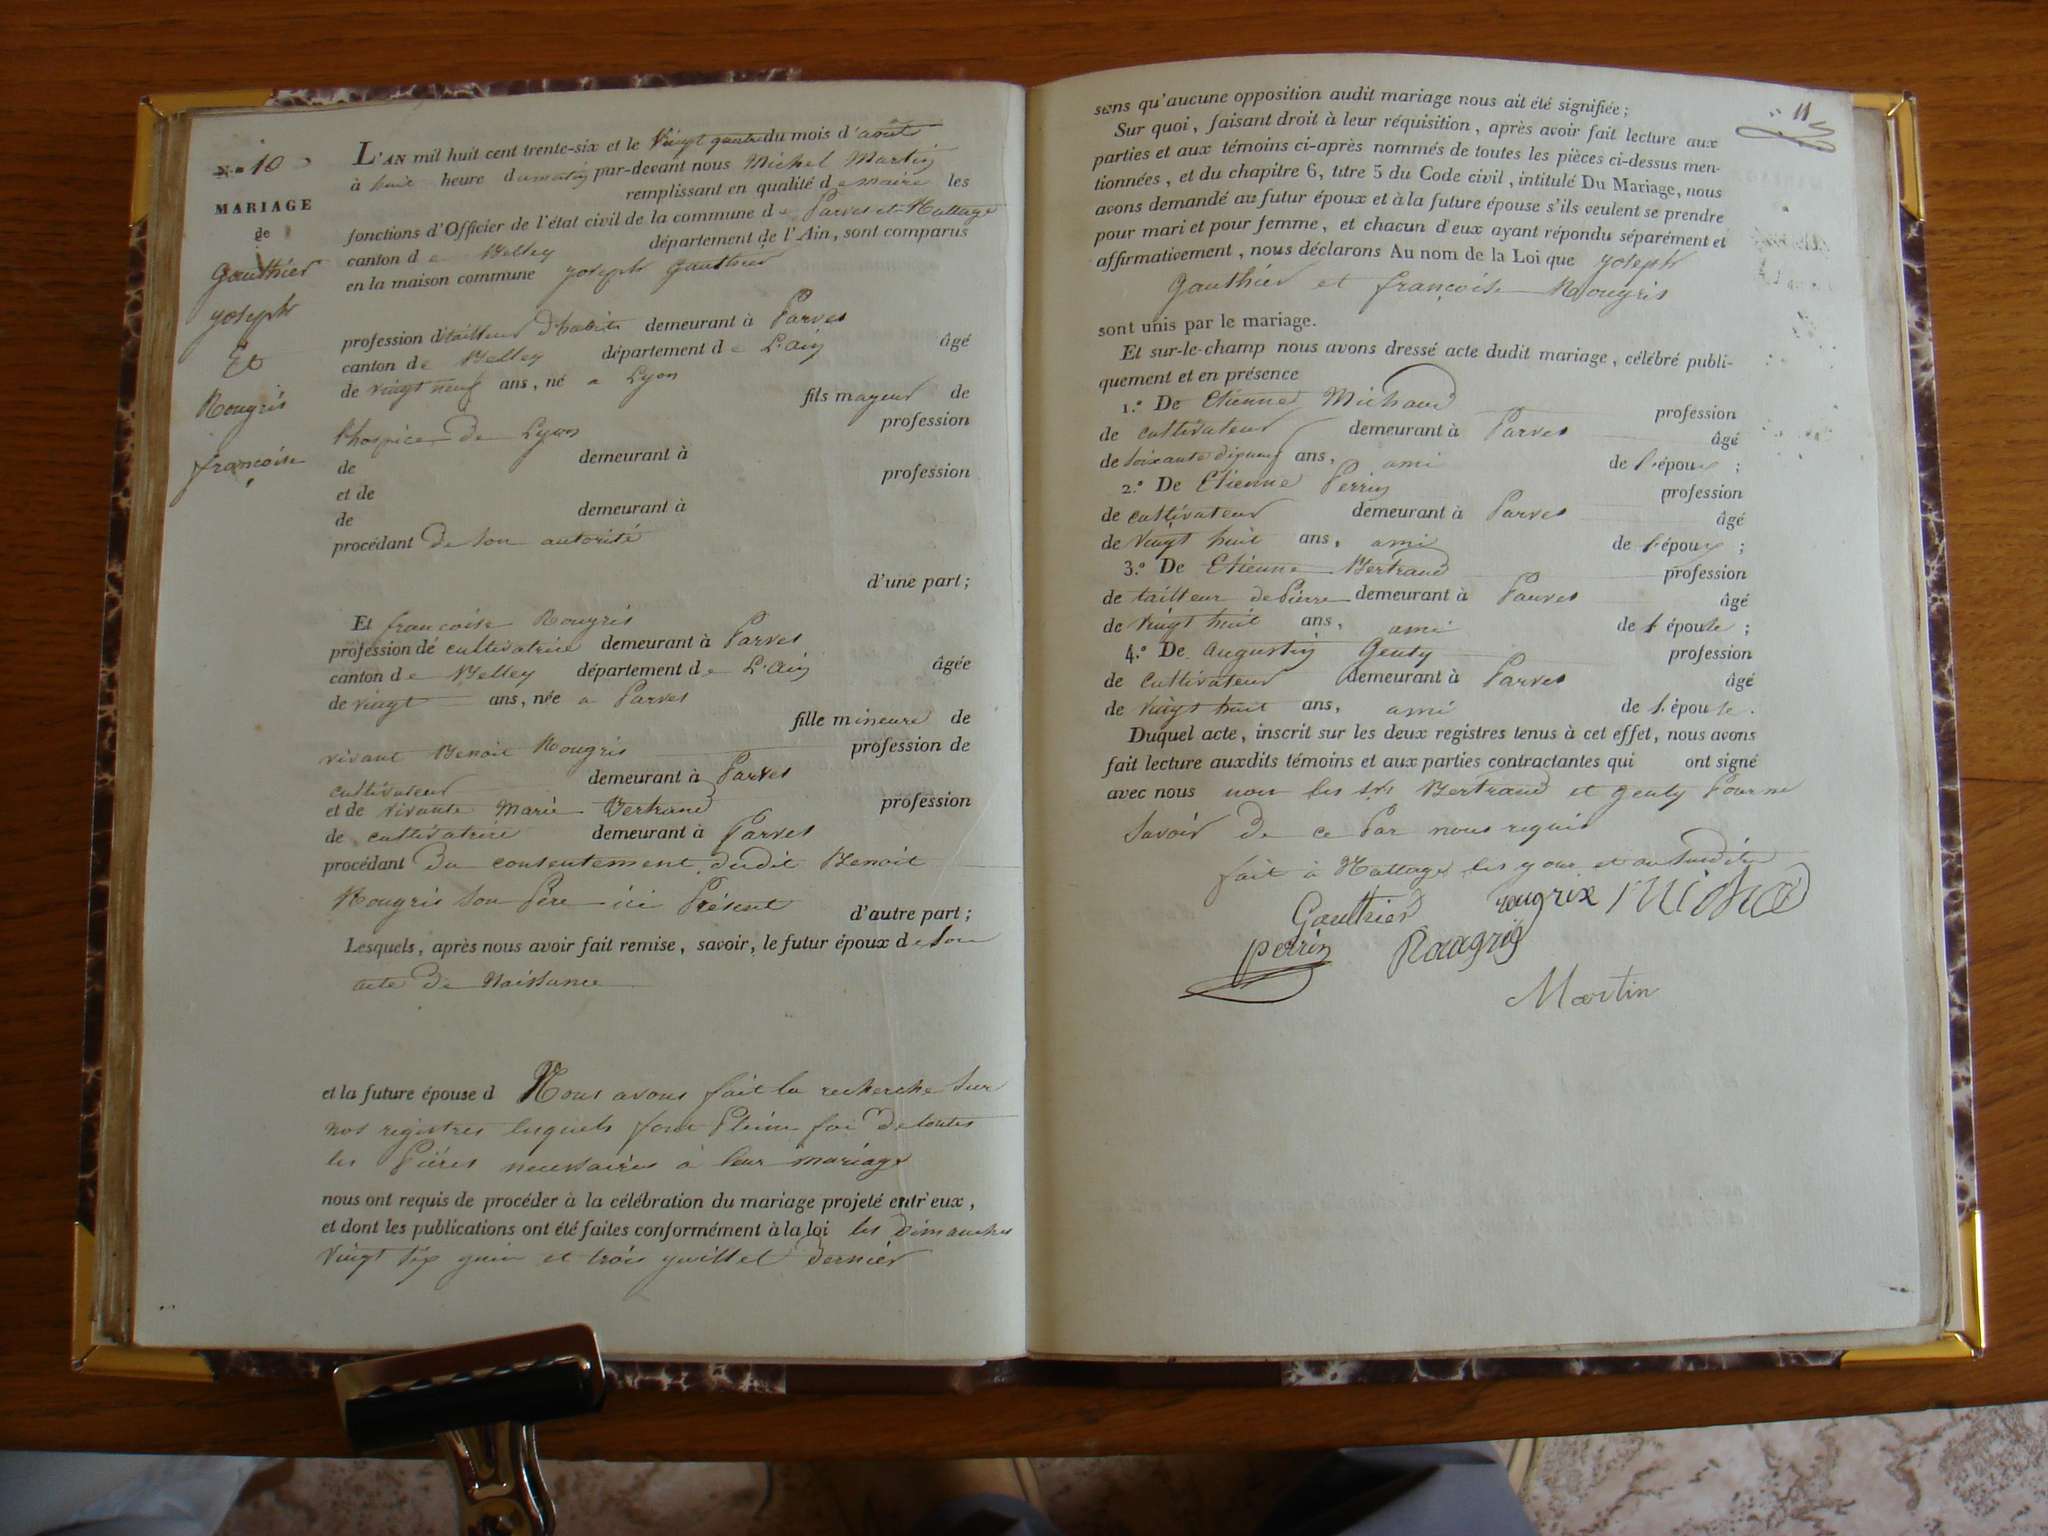 N.o 10
MARIAGE
de
Gauthier
joseph
Et
Rougris
françoise
L'AN mil huit cent trente-six et le Vingt quatre du mois d'aoûts
à huit heure du matin par-devant nous Michel Martin
remplissant en qualité de maire les
fonctions d'Officier de l'état civil de la commune de Parves et Nattage
canton de Belley département de l'Ain, sont comparus
en la maison commune joseph Gauthier
profession de tailleur d'habits demeurant à Parves
canton de Belley département de L'Ain âgé
de vingt neuf ans, né a Lyon
fils mageur de
l'hospice de Lyon profession
de demeurant à
et de profession
de demeurant à
procédant de son autorité
d'une part;
Et francoise Rougris
profession de cultivatrice demeurant à Parves
canton de Belley département de L'Ain âgée
de vingt ans, née a Parves
fille mineure de
vivant Benoit Rougris profession de
cultivateur demeurant à Parves
et de vivante Marie Bertrand profession
de cultivatrice demeurant à Parves
procédant du consentement dudit Benoit
Rougris son Père ici Présent d'autre part;
Lesquels, après nous avoir fait remise, savoir, le futur époux de son
acte de Naissance
et la future épouse d Nous avons fait la recherche sur
nos registres lesquels font Pleine foi de toutes
les Pièces necessaires à leur mariage
nous ont requis de procéder à la célébration du mariage projeté entr'eux,
et dont les publications ont été faites conformément à la loi les dimanches
vingt six juin et trois juillet dernier
11
sans qu'aucune opposition audit mariage nous ait été signifiée;
Sur quoi, faisant droit à leur réquisition, après avoir fait lecture aux
parties et aux témoins ci-après nommés de toutes les pièces ci-dessus men-
tionnées, et du chapitre 6, titre 5 du Code civil, intitulé Du Mariage, nous
avons demandé au futur époux et à la future épouse s'ils veulent se prendre
pour mari et pour femme, et chacun d'eux ayant répondu séparément et
affirmativement, nous déclarons Au nom de la Loi que joseph
Gauthier et françoise Rougris
sont unis par le mariage.
Et sur-le-champ nous avons dressé acte dudit mariage, célébré publi-
quement et en présence
1.o De Etienne Michaud profession
de cultivateur demeurant à Parves âgé
de soixante dixneuf ans, ami de l'époux;
2.o De Etienne Perrin profession
de cultivateur demeurant à Parves âgé
de vingt huit ans, ami de l'époux;
3.o De Etienne Bertrand profession
de tailleur de Pierre demeurant à Parves âgé
de vingt huit ans, ami de l'épouse;
4.o De Augustin Genty profession
de cultivateur demeurant à Parves âgé
de vingt huit ans, ami de l'épouse.
Duquel acte, inscrit sur les deux registres tenus à cet effet, nous avons
fait lecture auxdits témoins et aux parties contractantes qui ont signé
avec nous non les Bertrand et Genty Pour ne
savoir de ce Par nous requis
fait à Nattage les jour et an susdits
Gauthier rougrix
perrin Rougris
Martin